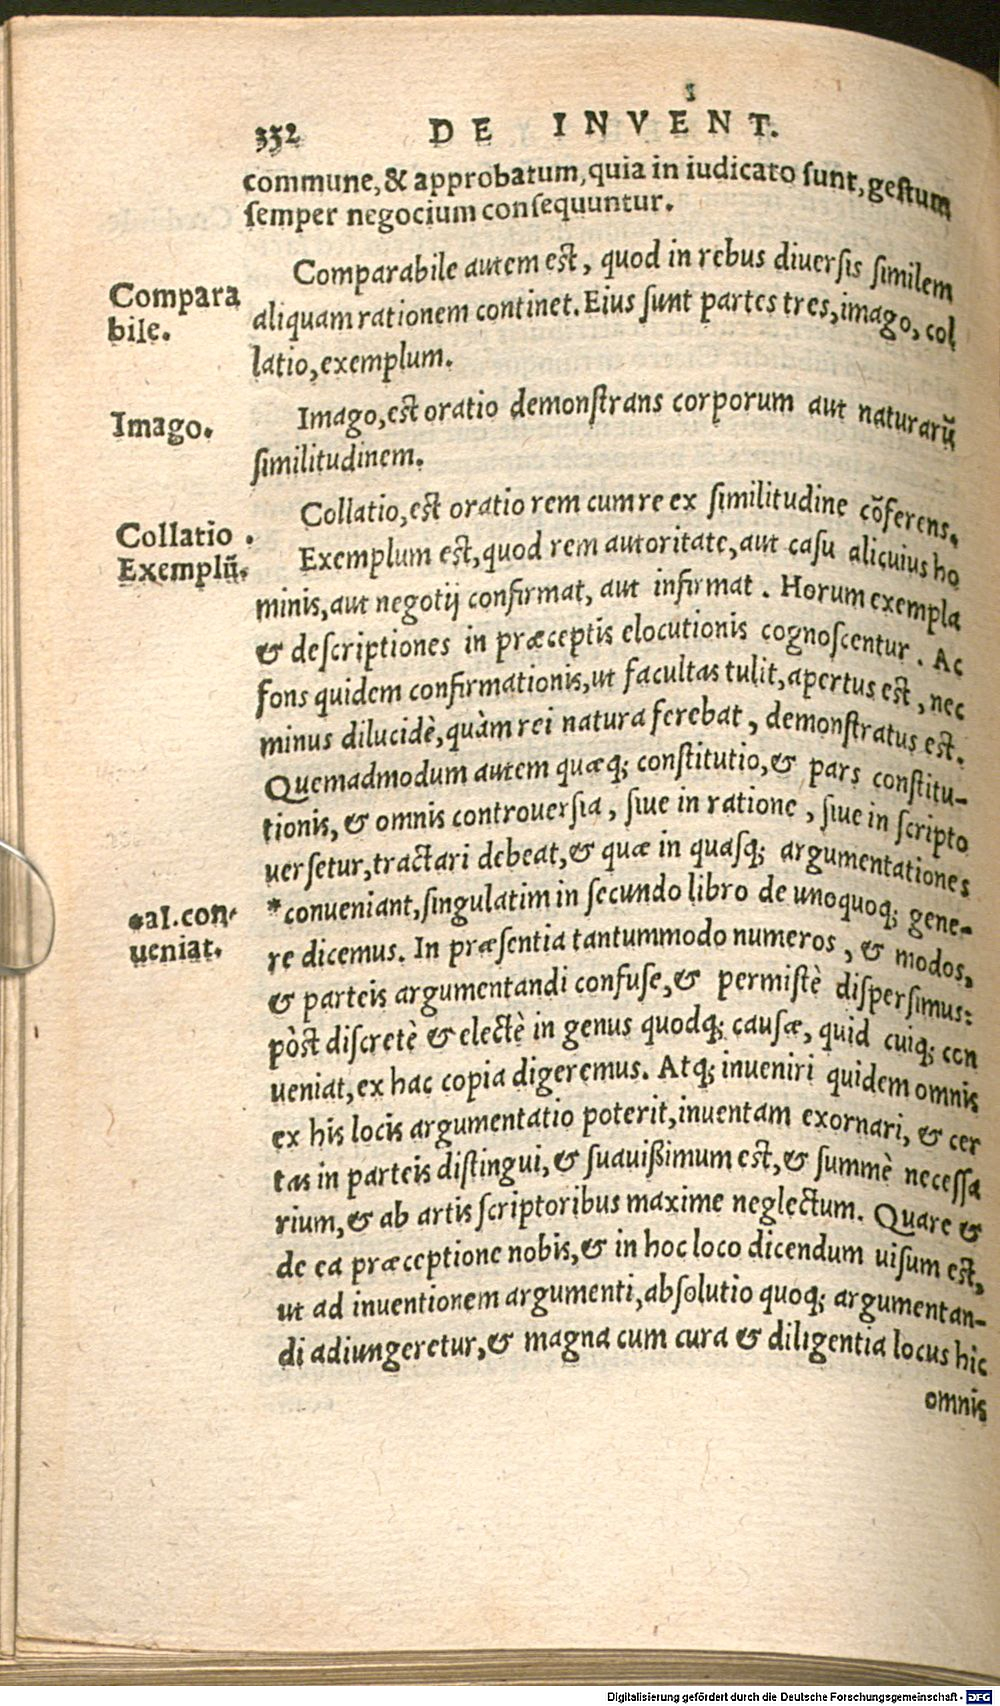 352 DE INVENT.
commune, & approbatum, quia in iudicato sunt, gestum
semper negocium consequuntur.
Compara
bile.
Comparabile autem est, quod in rebus diuersis similem
aliquam rationem continet. Eius sunt partes tres, imago, col
latio, exemplum.
Imago.
Imago, est oratio demonstrans corporum aut naturarũ
similitudinem.
Collatio.
Collatio, est oratio rem cum re ex similitudine cõferens.
Exemplũ.
Exemplum est, quod rem autoritate, aut casu alicuius ho
minis, aut negotij confirmat, aut infirmat. Horum exempla
& descriptiones in præceptis elocutionis cognoscentur. Ac
fons quidem confirmationis, ut facultas tulit, apertus est, nec
minus dilucidè, quàm rei natura ferebat, demonstratus est.
Quemadmodum autem quæq; constitutio, & pars constitu-
tionis, & omnis controuersia, siue in ratione, siue in scripto
uersetur, tractari debeat, & quæ in quasq; argumentationes
*al. con-
ueniat.
*conueniant, singulatim in secundo libro de unoquoq; gene-
re dicemus. In præsentia tantummodo numeros, & modos,
& parteis argumentandi confuse, & permistè dispersimus:
pòst discretè & electè in genus quodq; causæ, quid cuiq; con
ueniat, ex hac copia digeremus. Atq; inueniri quidem omnis
ex his locis argumentatio poterit, inuentam exornari, & cer
tas in parteis distingui, & suauißimum est, & summè necessa
rium, & ab artis scriptoribus maxime neglectum. Quare &
de ea præceptione nobis, & in hoc loco dicendum uisum est,
ut ad inuentionem argumenti, absolutio quoq; argumentan-
di adiungeretur, & magna cum cura & diligentia locus hic
omnis
Digitalisierung gefördert durch die Deutsche Forschungsgemeinschaft - DFG